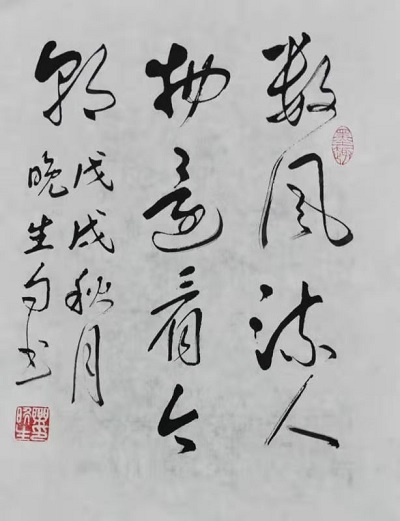 数风流人
物还看今
朝
戊戌秋月
晚生书